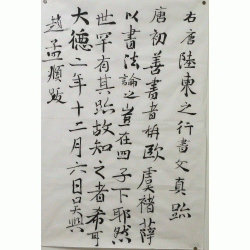 右唐陸柬之行書文真跡
唐初善書者稱歐虞褚薛
以書法論之豈在四子下耶然
世罕有其跡故知之者希可
大德二年十二月六日吴興
趙孟頫跋